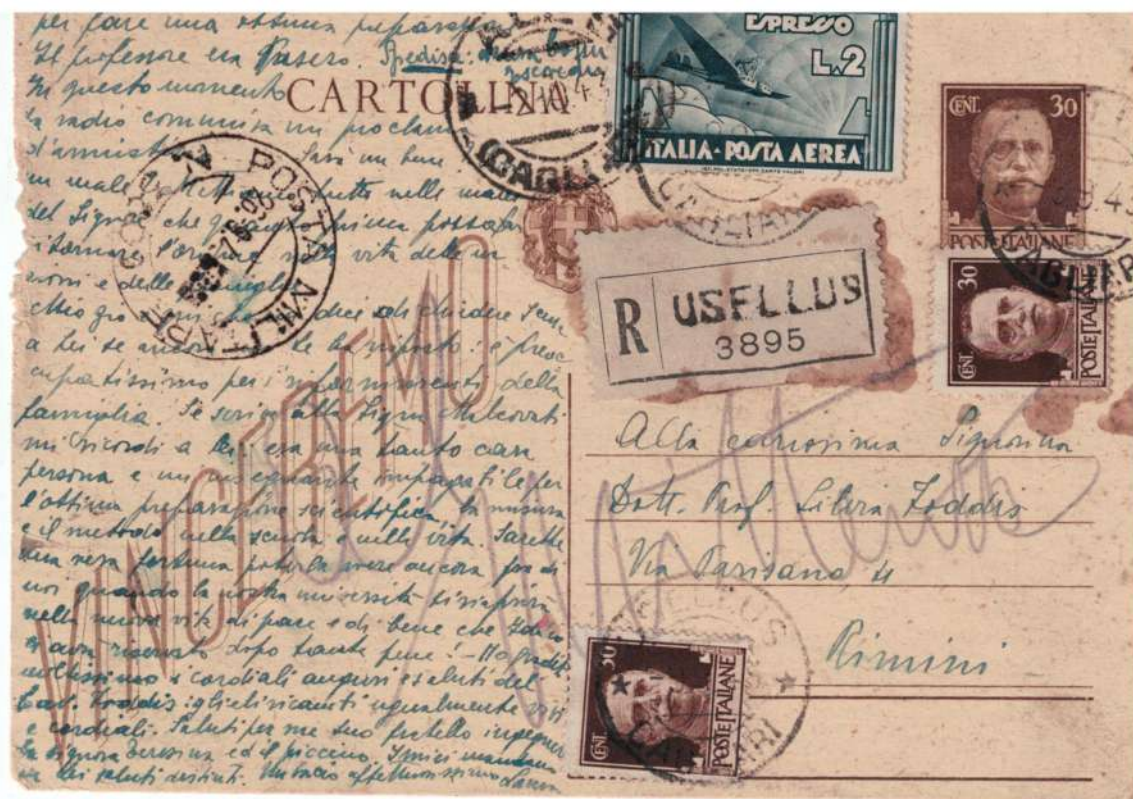 per fare una ottima preparazion
Il professore era Pasero. Spedisce:
In questo momento
la radio comunica un proclama
d'armisti Sarà un bene
un male tutto nelle mani
del Signore che possa far
ritornare l'ordine nella vita delle na
zioni e delle famiglie
Mio mi dice di chiedere
a Lei se ha risposto: è preoc
cupatissimo per i della
famiglia. Se scrive alla Sign. Malcovati
mi ricordi a Lei: era una tanto cara
persona e un insegnante impagabile per
l'ottima preparazione scientifica, la misura
e il metodo nella scuola e nella vita. Sarebbe
una vera fortuna poterla avere ancora fra di
noi quando la nostra università si riaprirà
nella nuova vita di pace e di bene che Iddio
ci avrà riservato dopo tante pene! - Ho gradito
moltissimo i cordiali auguri e saluti del
Cav. Foddis: glieli ricambi ugualmente vivi
e cordiali. Saluti per me suo fratello ingegner
la signora Teresina ed il piccino. I miei mandano
a Lei saluti distinti. Un bacio affettuosissimo
CARTOLINA
VINCEREMO
POSTA MILITARE
(CAGLIARI)
ESPRESSO
L.2
ITALIA - POSTA AEREA
CENT. 30
POSTE ITALIANE
CAGLIARI
30
CENT.
POSTE ITALIANE
R USELLUS
3895
Alla carissima Signorina
Dott. Prof. Silvia Foddis
Via Parisano 4
Rimini
USELLUS
CAGLIARI
30
CENT.
POSTE ITALIANE